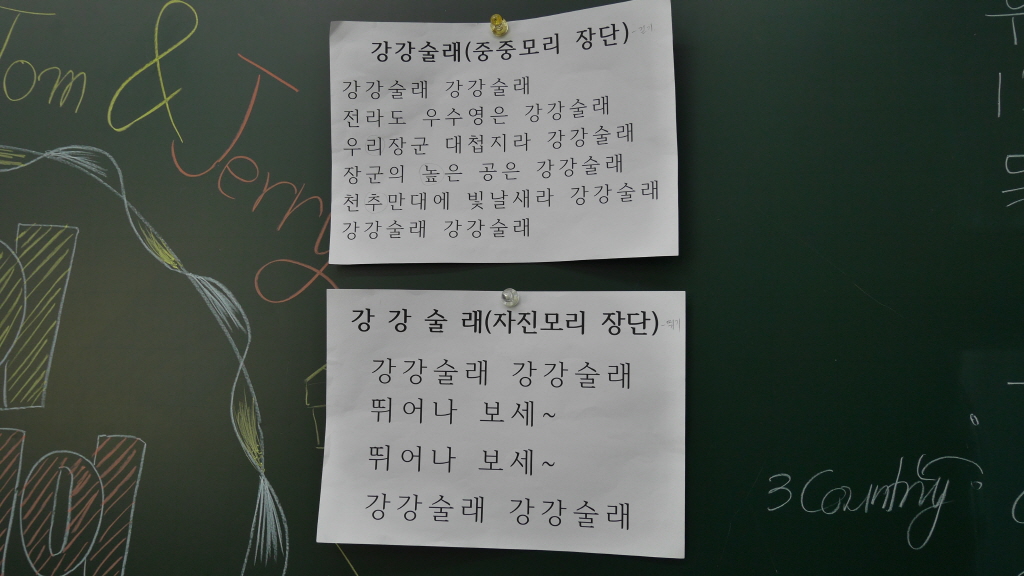 Tom & Jerry
강강술래(중중모리 장단)
강강술래 강강술래
전라도 우수영은 강강술래
우리장군 대첩지라 강강술래
장군의 높은 공은 강강술래
천추만대에 빛날새라 강강술래
강강술래 강강술래
강 강 술 래(자진모리 장단)
강강술래 강강술래
뛰어나 보세~
뛰어나 보세~
강강술래 강강술래
3 Country